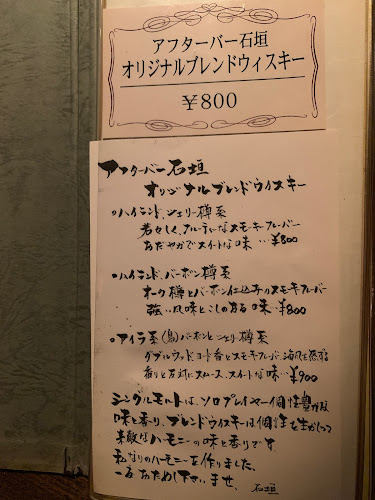 アフターバー石垣
オリジナルブレンドウィスキー
¥800
アフターバー石垣
オリジナルブレンドウイスキー
○ハイランド、シェリー樽系
若々しく、フルーティなスモーキーフレーバー
おだやかでスイートな味…¥800
○ハイランド、バーボン樽系
オーク樽とバーボン仕込みのスモーキーフレーバー
強い風味とこしのある味…¥800
○アイラ系(島)バーボンとシェリー樽系
ダブルウッド、ヨード香とスモーキーフレーバー、海風を感ずる
香りと反対にスムース、スイートな味…¥900
シングルモルトは、ソロプレイヤー個性豊かな
味と香り、ブレンドウイスキーは個性を生かして
素敵なハーモニーの味と香りです。
私なりのハーモニーを作りました。
一度おためし下さいませ。
石垣